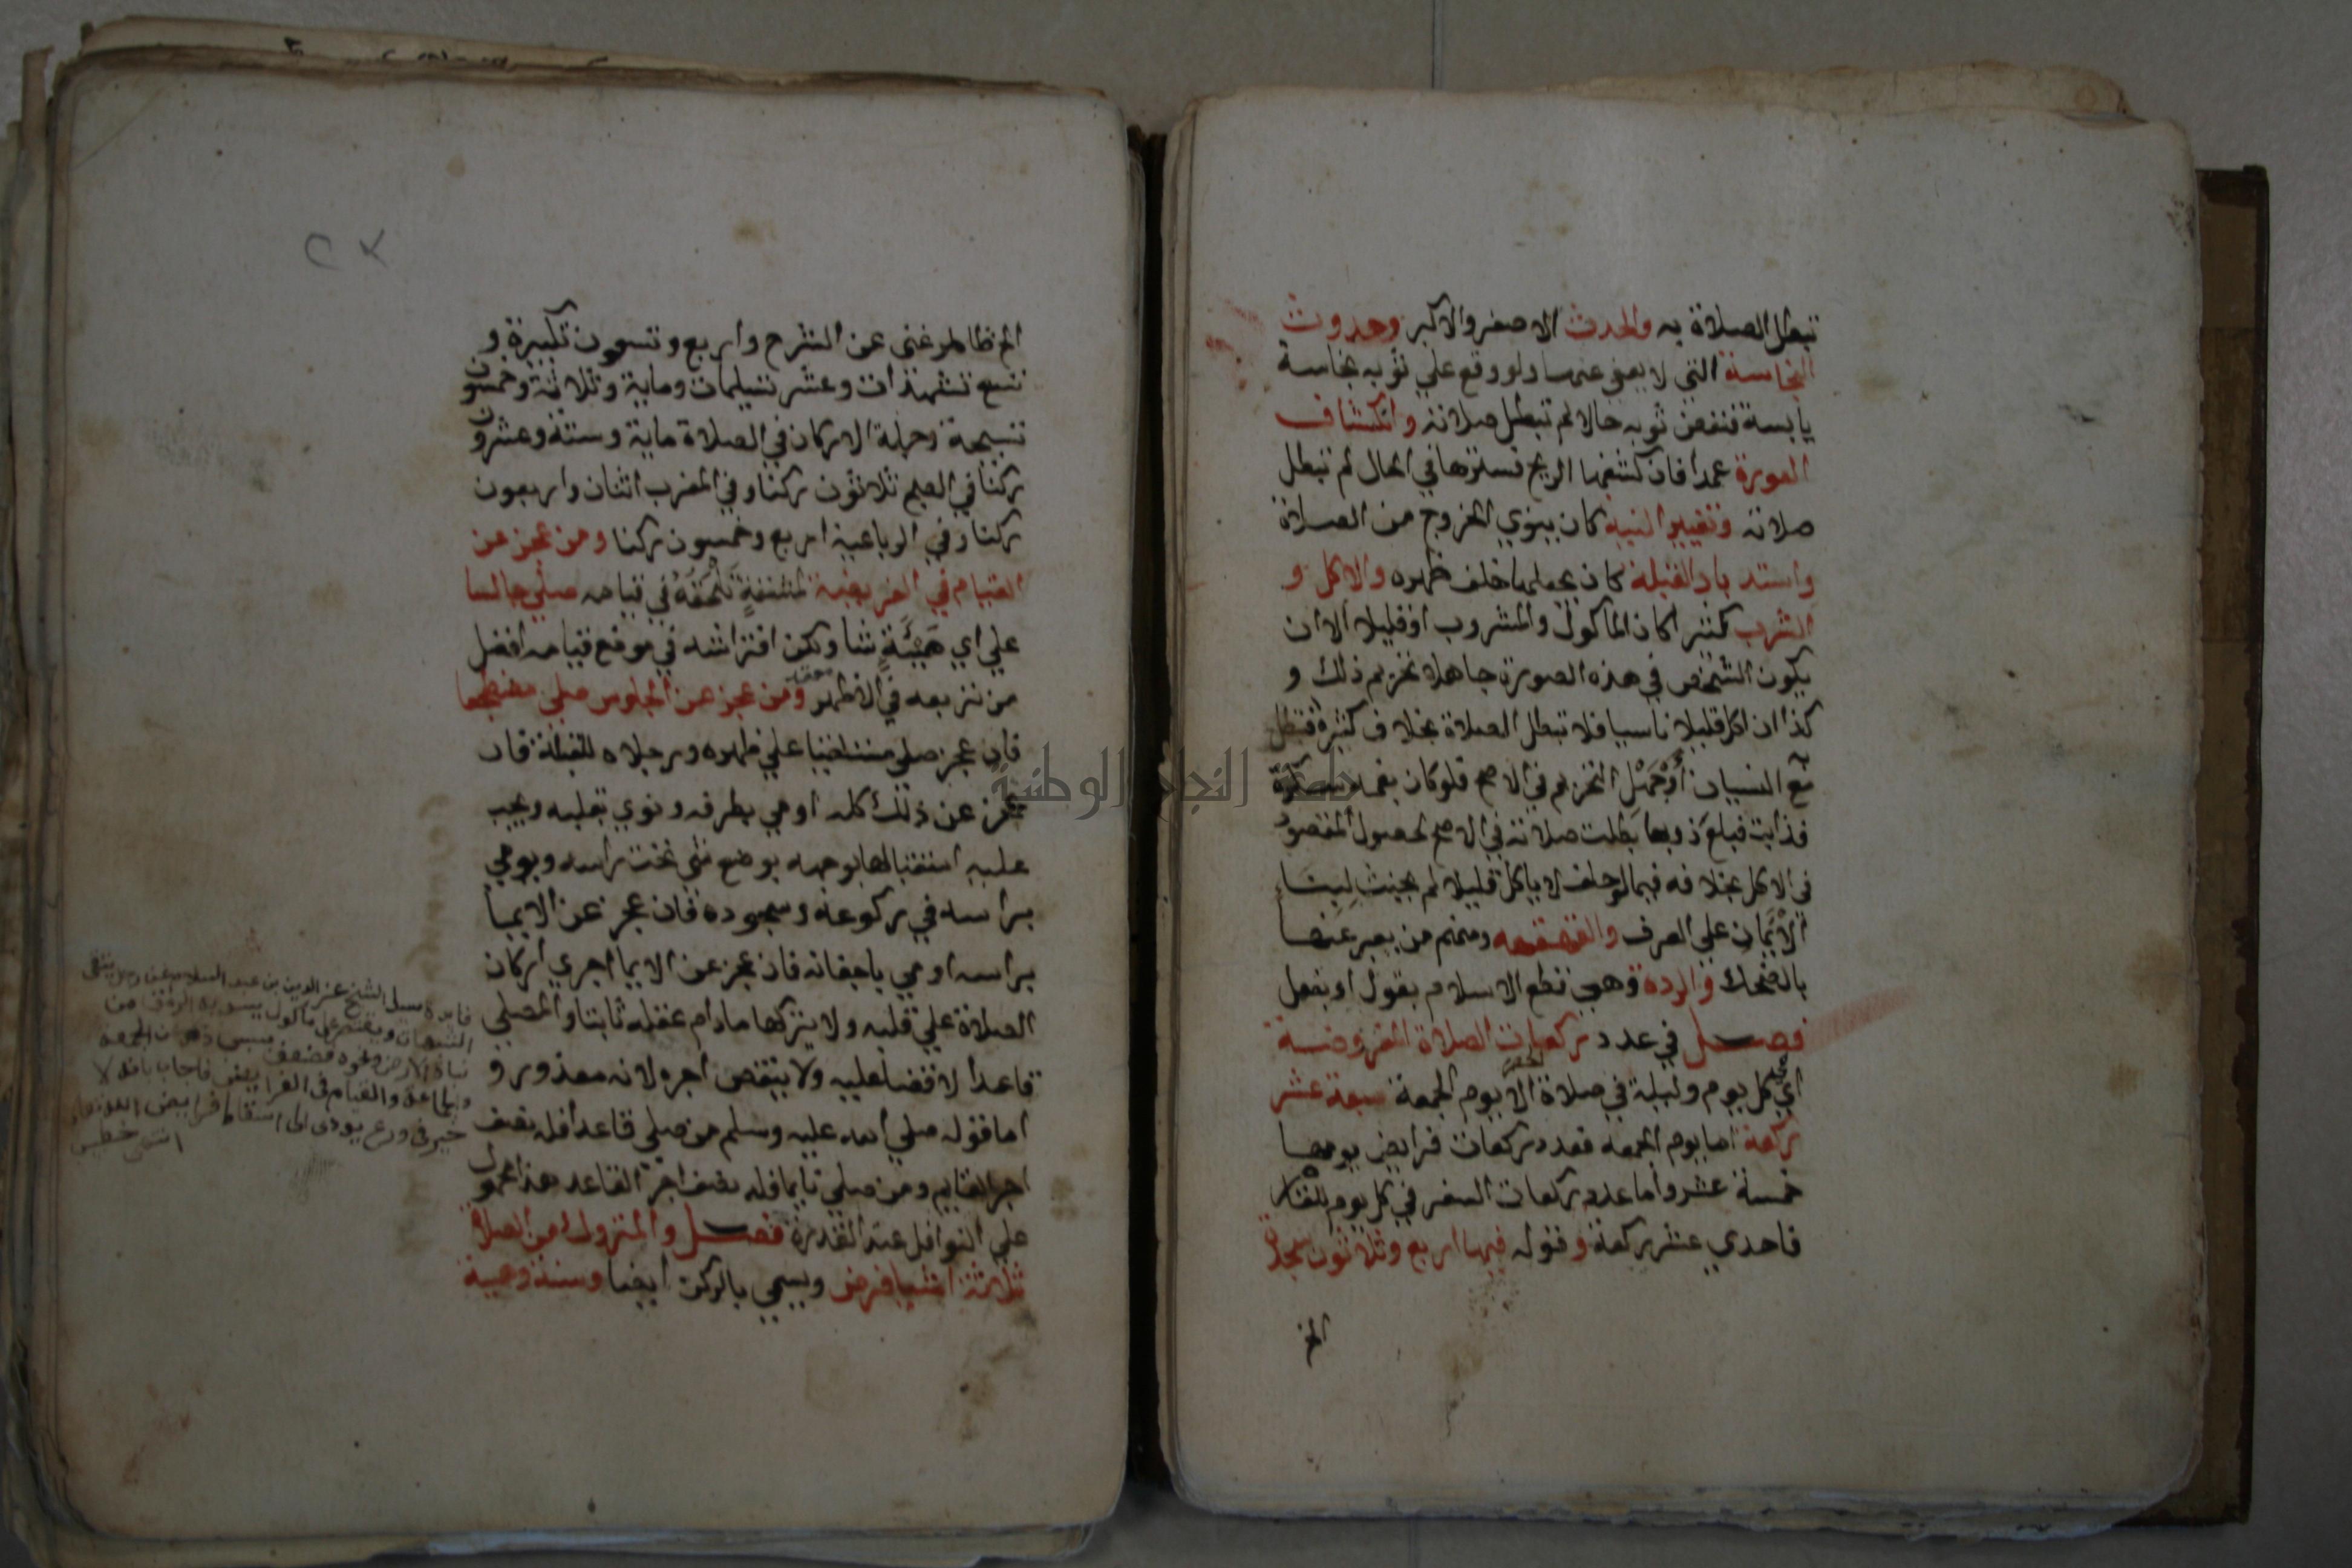 تبطل الصلاة به والحدث الاصغر والاكبر وحدوث
النجاسة التي لا يعفى عنها ولو وقع علي ثوبه نجاسة
يابسة فنفض ثوبه حالا لم تبطل صلاته وانكشاف
العورة عمدا فان كشفها الريح فسترها في الحال لم تبطل
صلاته وتغيير النية كان ينوي الخروج من الصلاة
واستدبار القبلة كان يجعلها خلف ظهره والاكل و
الشرب كثيرا كان الماكول والمشروب او قليلا الا ان
يكون الشخص في هذه الصورة جاهلا تحريم ذلك و
كذا ان اكل قليلا ناسيا فلا تبطل الصلاة بخلاف كثيره فتبطل
مع النسيان أوجهل التحريم في الاصح فلو كان بفمه سكرة
فذابت فبلع ذوبها بطلت صلاته في الاصح لحصول المقصود
في الاكل بخلافه فيما لو حلف لا ياكل قليلا لم يحنث
الأيمان علي العرف والقهقهه ومنهم من يعبر عنها
بالضحك والردة وهي قطع الاسلام بقول او بفعل
فصل في عدد ركعات الصلاة المفروضة
اي كل يوم وليلة في صلاة الحضر الا يوم الجمعة سبعة عشر
ركعة اما يوم الجمعه فعدد ركعات فرايض يومها
خمسة عشر واما عدد ركعات السفر في كل يوم للقاصر
فاحدي عشر ركعة وقوله فيها اربع وثلاثون سجدة
الخ
٢٧
الخ ظاهر غني عن الشرح واربع وتسعون تكبيرة و
تسع تشهدات وعشر تسليمات وماية وثلاثة وخمسون
تسبيحة وجملة الاركان في الصلاة ماية وستة وعشرون
ركنا في الصبح ثلاثون ركنا وفي المغرب اثنان واربعون
ركنا وفي الرباعية اربع وخمسون ركنا ومن عجز عن
القيام في الفريضة لمشقةٍ تلحقُهُ في قيامه صلي جالسا
علي اي هيئةٍ شا ولكن افتراشه في موضع قيامه افضل
من تربعه في الاظهر ومن عجز عن الجلوس صلي مضطجعا
فان عجز صلي مستلقيا علي ظهره ورجلاه للقبلة فان
عجز عن ذلك كله اومي بطرفه ونوي بقلبه ويجب
عليه استقبالها بوجهه بوضع شي تحت راسه ويومي
براسه في ركوعه وسجوده فان عجز عن الايما
براسه اومي باجفانه فان عجز عن الايما اجري اركان
الصلاة علي قلبه ولا يتركها مادام عقله ثابتا والمصلي
قاعدا لا قضا عليه ولا ينقص اجره لانه معذور و
اما قوله صلي الله عليه وسلم من صلي قاعدا فله نصف
اجر القايم ومن صلي نايما فله نصف اجر القاعد هذا محمول
علي النوافل عند القدرة فصل والمتروك من الصلاة
ثلاثة اشيا فرض ويسمي بالركن ايضا وسنة وهيية
فايدة سيل الشيخ عز الدين بن عبد السلام عن رجل يتقي
الشبهات ويقتصر علي ماكول يسير من
نبات الارض ونحوه فضعف بسبب ذلك عن الجمعة
والجماعة والقيام في الفرايض فاجاب بانه لا
خير في ورع يودي الى اسقاط فرايض الله
انتهى خطيب
جامعة النجاح الوطنية